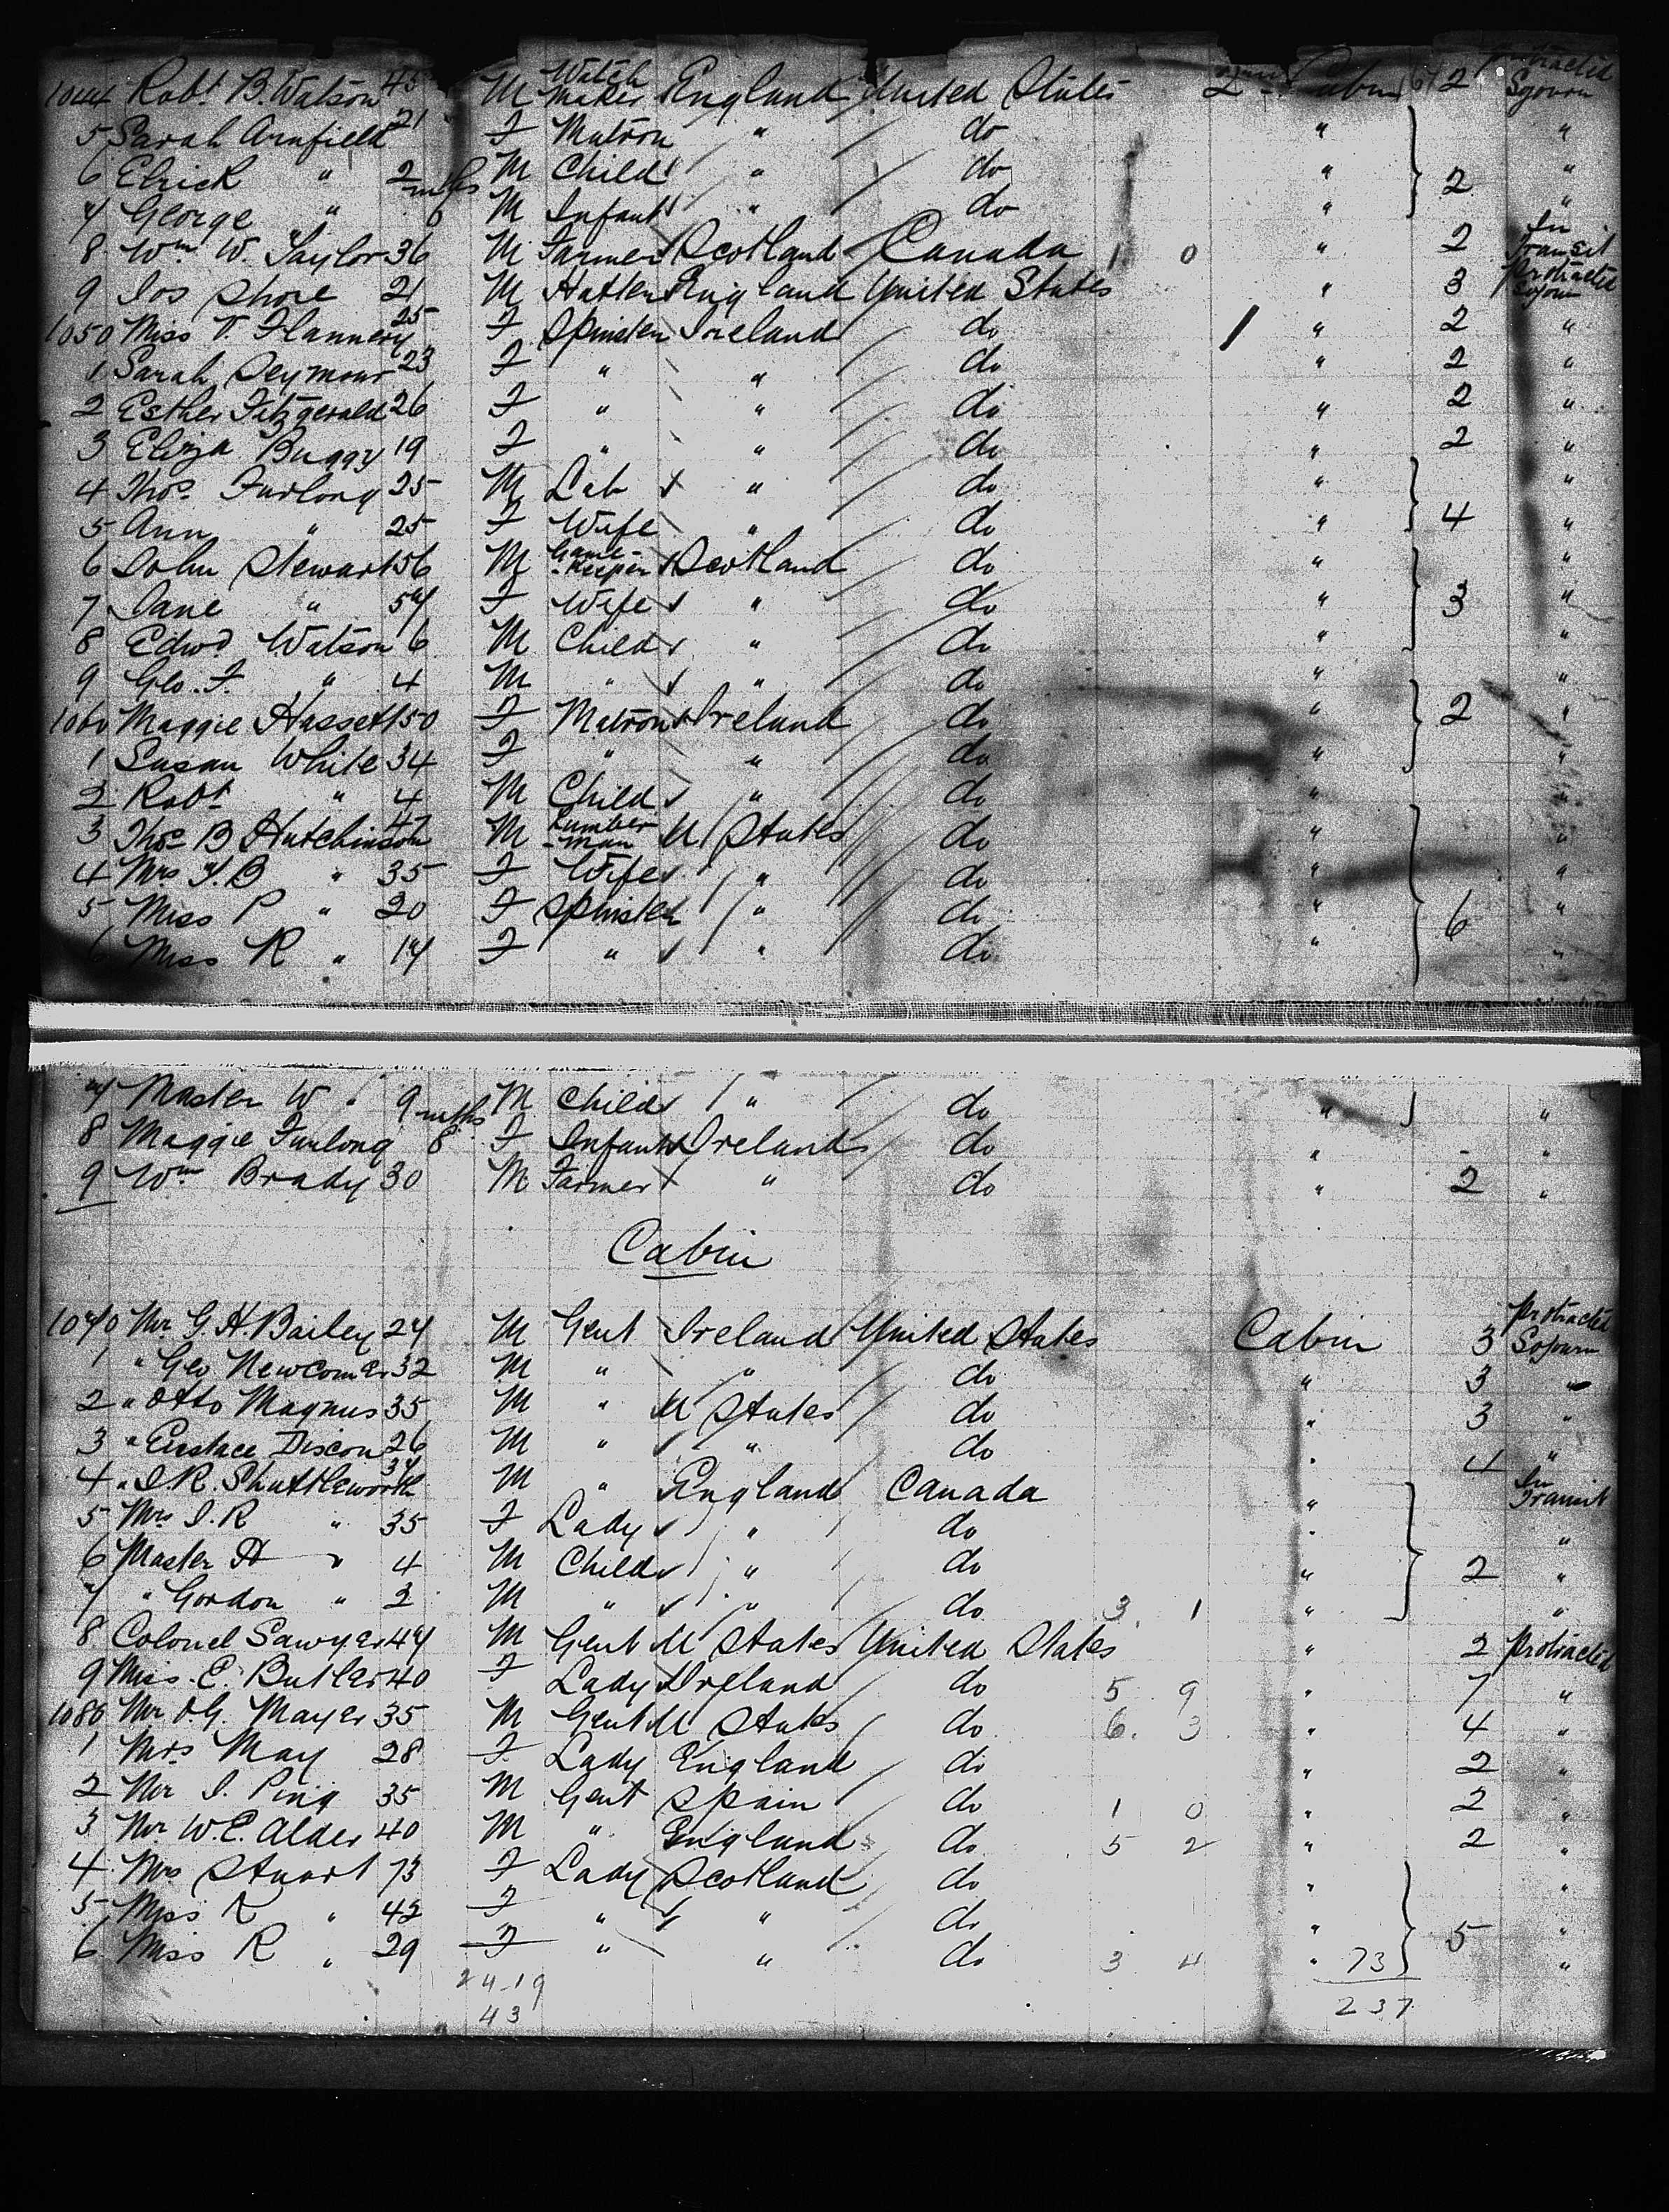 1044 Robt B. Watson 45 M Watch Maker England United States 2nd Cabin 2 Protracted Sojourn
5 Sarah Arnfield 21 F Matron " do "  "
6 Elrick " 2 M Child " do " 2 "
7 George " 6 mths M Infant " do " "
8 Wm W. Taylor 36 M Farmer Scotland Canada 1 0 " 2 In Transit
9 Jos Shore 21 M Hatter England United States " 3 Protracted Sojourn
1050 Miss T. Flannery 25 F Spinster Ireland do " 2 "
1 Sarah Seymour 23 F " " do " 2 "
2 Esther Fitzgerald 26 F " " do " 2 "
3 Eliza Buggy 19 F " " do " 2 "
4 Thos Furlong 25 M Lab " do " "
5 Ann " 25 F Wife " do " 4 "
6 John Stewart 56 M Game-Keeper Scotland do " "
7 Jane " 57 F Wife " do " 3 "
8 Edwd Watson 6 M Child " do " "
9 Geo. F. " 4 M " " do " "
1060 Maggie Hasset 50 F Matron Ireland do " 2 "
1 Susan White 34 F " " do " "
2 Robt " 4 M Child " do " "
3 Thos B Hutchinson 47 M Lumber-man U States do " "
4 Mrs T. B " 35 F Wife " do " "
5 Miss P " 20 F Spinster " do " 6 "
6 Miss R " 17 F " " do " "
7 Master W " 9 M Child " do " "
8 Maggie Furlong 8 mths F Infant Ireland do " - "
9 Wm Brady 30 M Farmer " do " 2 "
Cabin
1070 Mr G. H. Bailey 24 M Gent Ireland United States Cabin 3 Protracted Sojourn
1 " Geo Newcomer 32 M " " do " 3 "
2 " Otto Magnus 35 M " U States do " 3 "
3 " Eustace Discon 26 M " " do " 4 "
4 " J. R. Shuttleworth 37 M " England Canada " In Transit
5 Mrs J. R " 35 F Lady " do " "
6 Master H " 4 M Child " do " 2 "
7 " Gordon " 2 M " " do 3 1 " "
8 Colonel Sawyer 47 M Gent U States United States " 2 Protracted
9 Miss E. Butler 40 F Lady Ireland do 5 9 " 7 "
1080 Mr O. G. Mayer 35 M Gent U States do 6 3 " 4 "
1 Mrs May 28 F Lady England do " 2 "
2 Mr J. Ping 35 M Gent Spain do 1 0 " 2 "
3 Mr W. E. Alder 40 M " England do 5 2 " 2 "
4 Mrs Stuart 73 F Lady Scotland do " "
5 Miss K " 42 F " " do " 5 "
6 Miss R " 29 F " " do 3 4 " 73 "
24-19
43 237